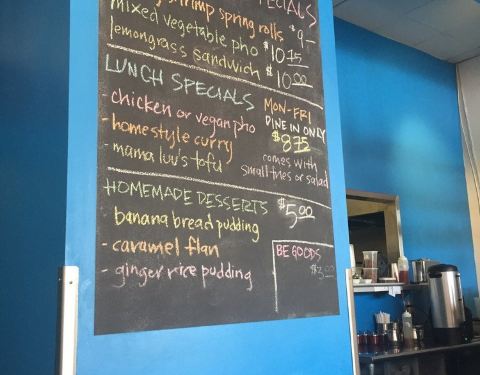 SPECIALS
shrimp spring rolls $9-
mixed vegetable pho $10.75
lemongrass sandwich $10.00
LUNCH SPECIALS
- chicken or vegan pho
- homestyle curry
- mama luu's tofu
MON-FRI
DINE IN ONLY
$8.75
comes with
small fries or salad
HOMEMADE DESSERTS $5.00
banana bread pudding
- caramel flan
- ginger rice pudding
BE GOODS
$3.00